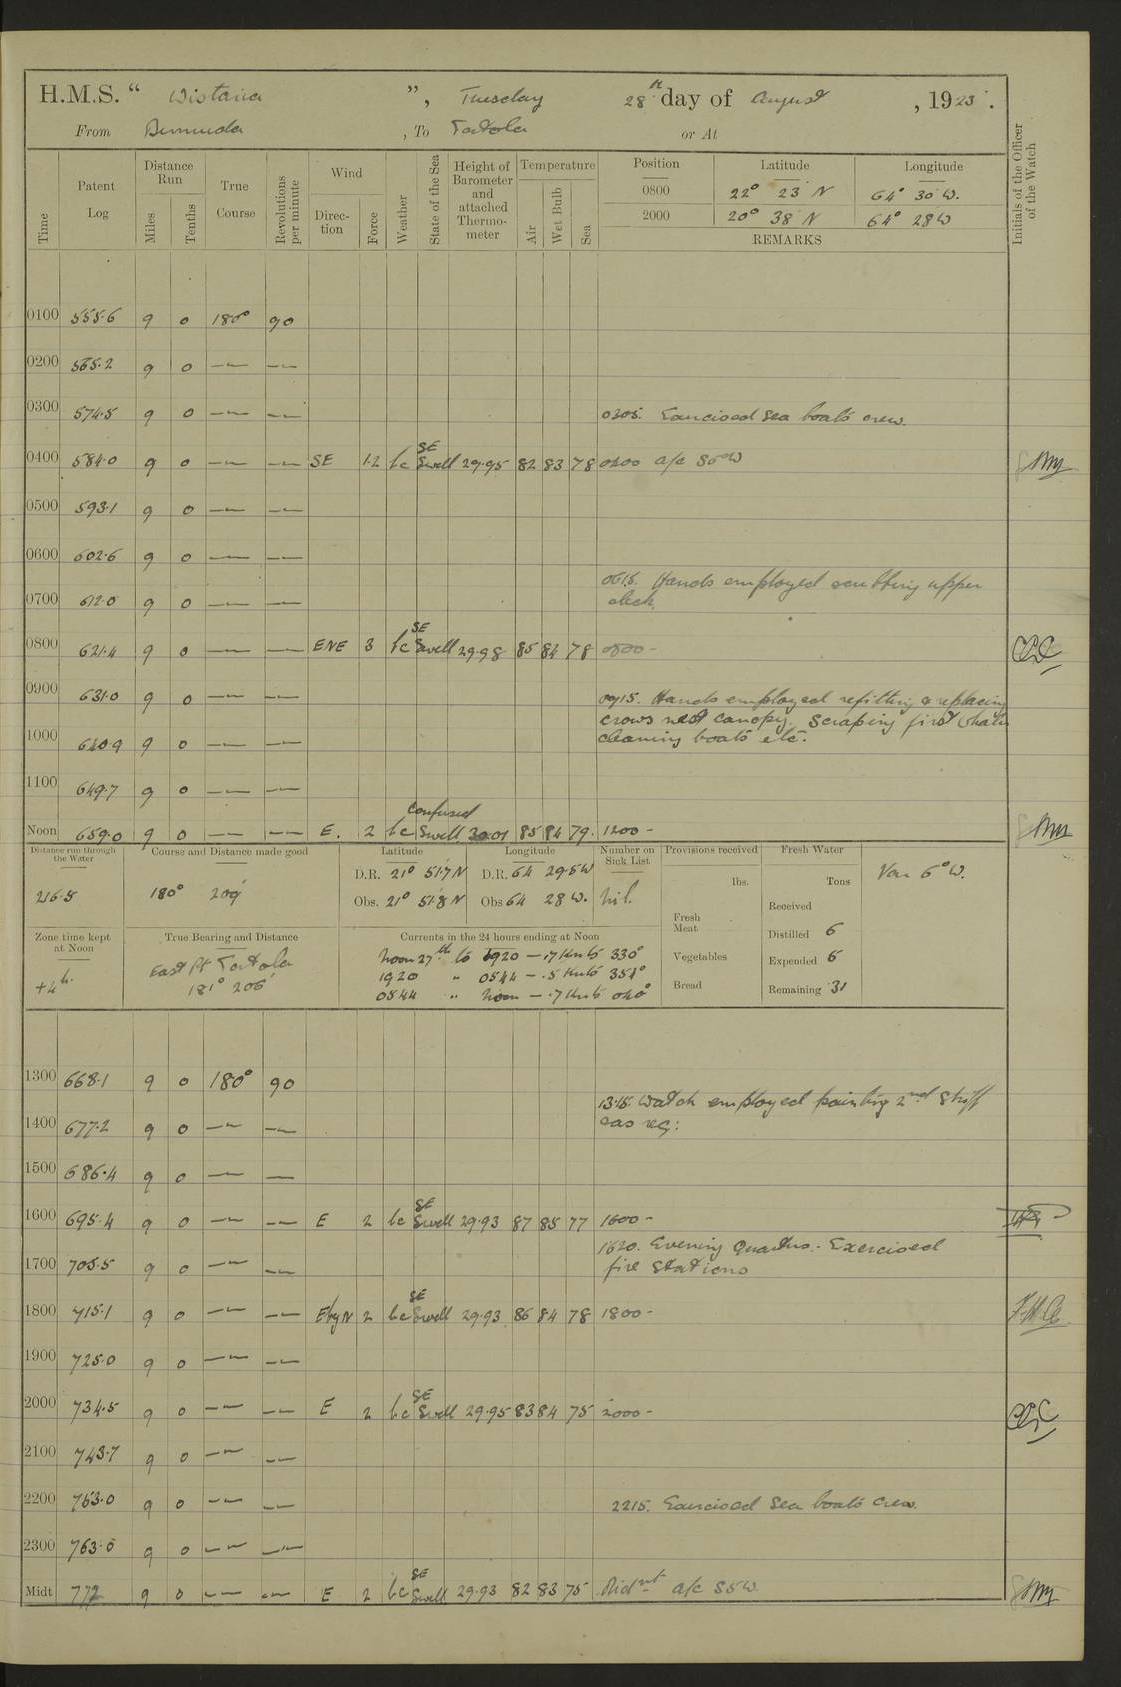 H.M.S. “ Wistaria ”, Tuesday 28th day of August, 1923.
From Bermuda, To Tortola or At
Time
Patent Log
Distance Run
Miles
Tenths
True Course
Revolutions per minute
Wind
Direction
Force
Weather
State of the Sea
Height of Barometer and attached Thermometer
Temperature
Air
Wet Bulb
Sea
Position Latitude Longitude
0800 22° 23' N 64° 30' W.
2000 20° 38' N 64° 28 W
REMARKS
Initials of the Officer of the Watch
0100 555.6 9 0 180° 90
0200 565.2 9 0 — —
0300 574.5 9 0 — — 0305. Exercised Sea boats crew.
0400 584.0 9 0 — — SE 1-2 bc SE Swell 29.95 82 83 78 0400 a/c
0500 593.1 9 0 — —
0600 602.6 9 0 — —
0615. Hands employed scrubbing upper
deck.
0700 612.0 9 0 — —
0800 621.4 9 0 — — ENE 3 bc SE Swell 29.98 85 84 78 0800 -
0900 631.0 9 0 — — 0915. Hands employed refitting & replacing
crows nest canopy. Scraping first
1000 640.9 9 0 — — cleaning boats etc.
1100 649.7 9 0 — —
Noon 659.0 9 0 — — E. 2 bc Confused Swell 30.01 85 84 79. 1200 -
Distance run through the Water
216.5
Course and Distance made good
180° 209'
Latitude
D.R. 21° 51.7 N
Obs. 21° 51.8 N
Longitude
D.R. 64 29.5 W
Obs 64 28 W.
Number on Sick List
Nil.
Provisions received
lbs.
Fresh Meat
Vegetables
Bread
Fresh Water
Tons
Received
Distilled 6
Expended 6
Remaining 31
Var 6° W.
Zone time kept at Noon
+4h.
True Bearing and Distance
East Pt Tortola
181° 206'
Currents in the 24 hours ending at Noon
Noon 27th to 1920 — .7 Knts 330°
1920 " 0544 — .5 Knts 351°
0544 " Noon — .7 Knts 040°
1300 668.1 9 0 180° 90
1315. Watch employed painting 2nd Skiff
1400 677.2 9 0 — — as req:
1500 686.4 9 0 — —
1600 695.4 9 0 — — E 2 bc SE Swell 29.93 87 85 77 1600 -
1620. Evening Quarters. Exercised
1700 705.5 9 0 — — fire Stations
1800 715.1 9 0 — — EbyN 2 bc SE Swell 29.93 86 84 78 1800 -
1900 725.0 9 0 — —
2000 734.5 9 0 — — E 2 bc SE Swell 29.95 83 84 75 2000 -
2100 743.7 9 0 — —
2200 753.0 9 0 — — 2215. Exercised Sea boats crew.
2300 763.0 9 0 — —
Midt 772 9 0 — — E 2 bc SE Swell 29.93 82 83 75 Midnt a/c S5W